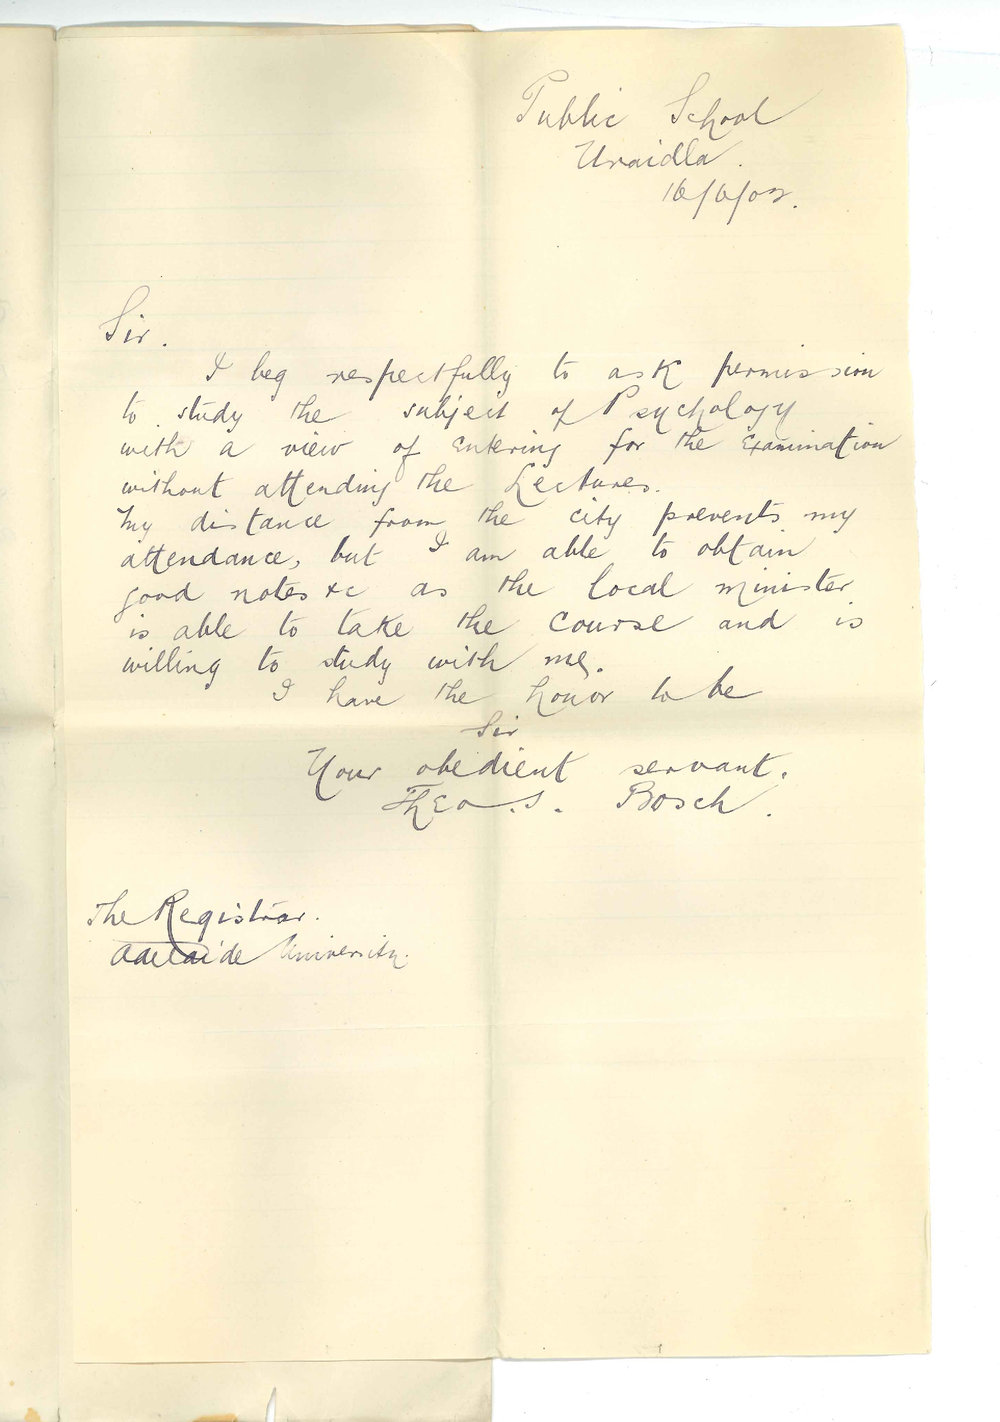 Public School
Uraidla.
16/6/02.
Sir.
I beg respectfully to ask permission
to study the subject of Psychology
with a view of entering for the Examination
without attending the Lectures.
My distance from the city prevents my
attendance, but I am able to obtain
good notes &c as the local minister
is able to take the course and is
willing to study with me.
I have the honor to be
Sir
Your obedient servant.
Theo. J. Bosch.
The Registrar.
Adelaide University.